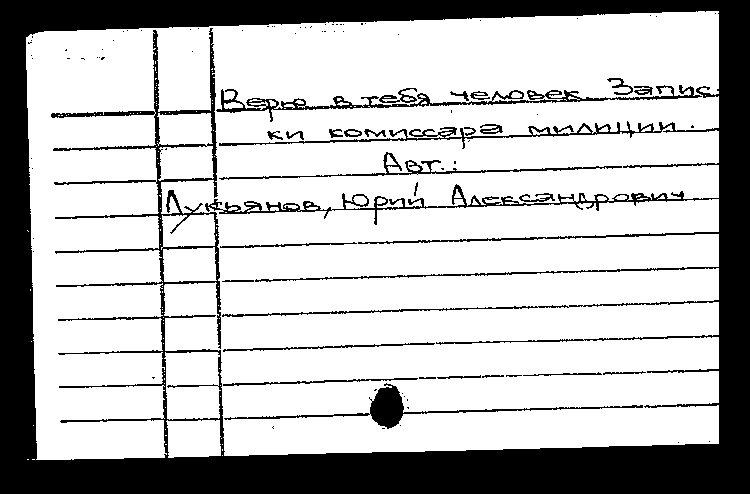 Верю в тебя человек. Запис-
ки комиссара милиции.
Авт.:
Лукьянов, Юрий Александрович